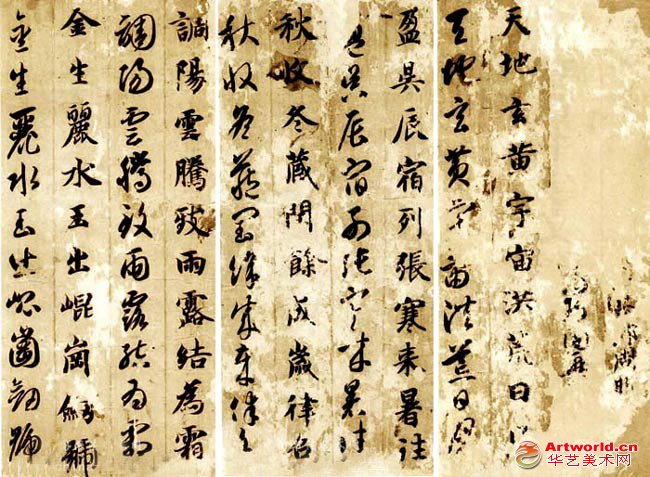 天地玄黄宇宙洪荒日月
天地玄黄宇宙洪荒日月
盈昃辰宿列張寒来暑往
盈昃辰宿列張寒来暑往
秋收冬藏閏餘成歲律召
秋收冬藏閏餘成歲律召
調陽雲騰致雨露結為霜
調陽雲騰致雨露結為霜
金生麗水玉出崐崗劒號
金生麗水玉出崐崗劒號
Artworld.cn
华艺美术网